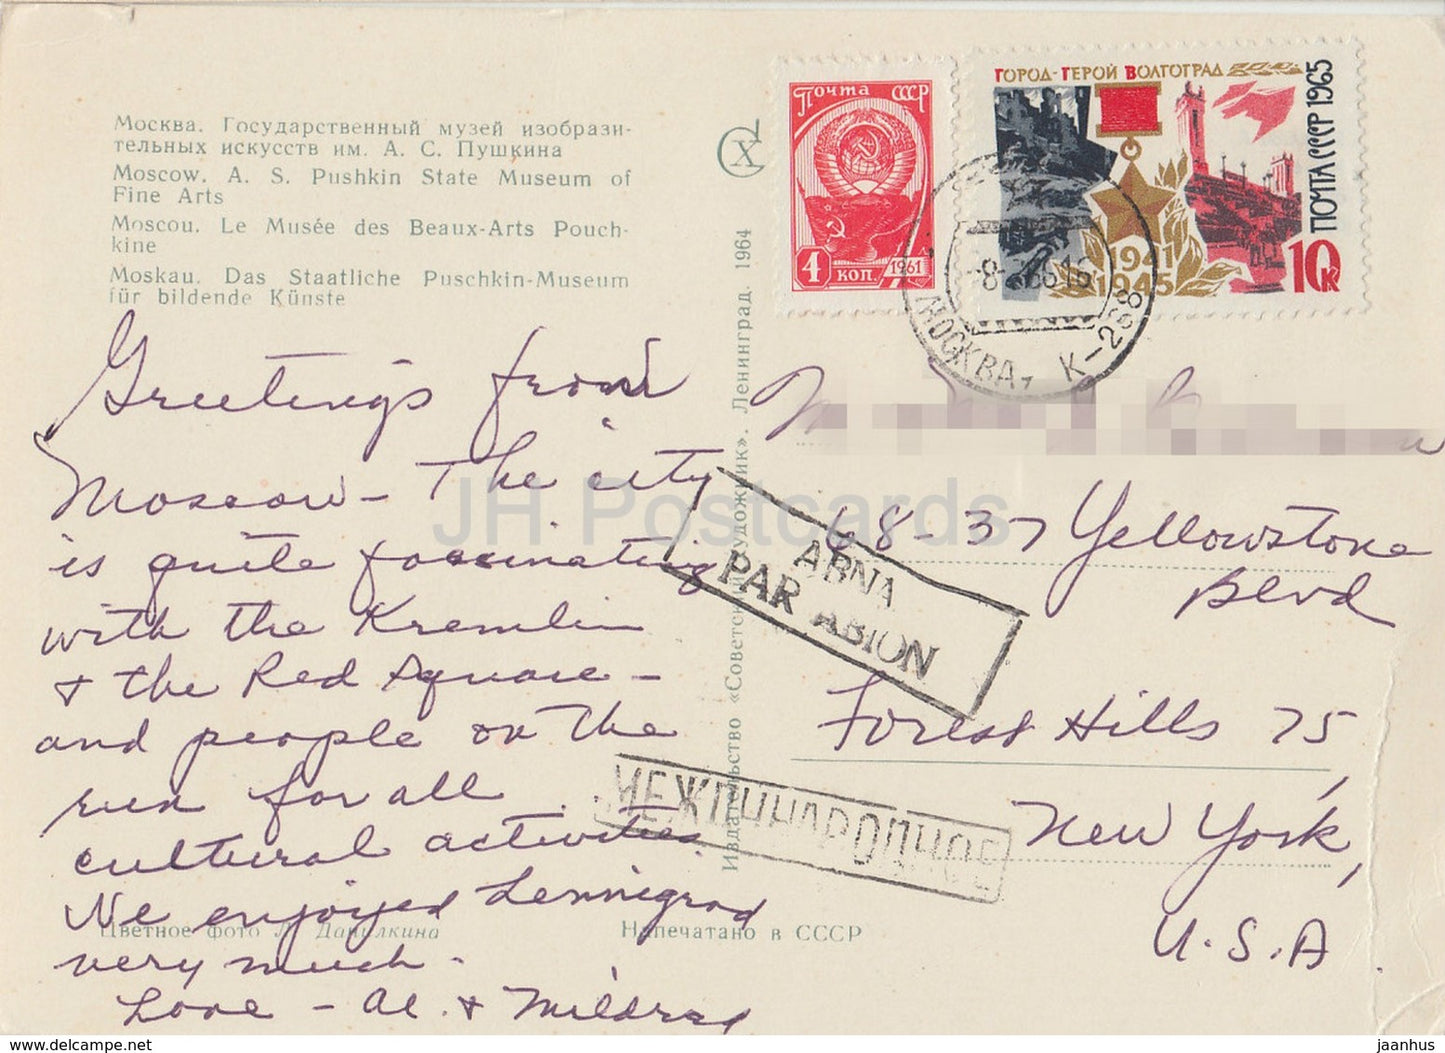 Москва. Государственный музей изобрази-
тельных искусств им. А. С. Пушкина
Moscow. A. S. Pushkin State Museum of
Fine Arts
Moscou. Le Musée des Beaux-Arts Pouch-
kine
Moskau. Das Staatliche Puschkin-Museum
für bildende Künste
Greetings from
Moscow - The city
is quite fascinating
with the Kremlin
+ the Red Square -
and people on the
run for all
cultural activities
We enjoyed Lennigrad
very much.
Love - Al. + Mildred
Цветное фото Л. Данилкина
Напечатано в СССР
Издательство «Советский художник». Ленинград. 1964
Почта СССР
4 коп. 1961
Город-Герой Волгоград
ПОЧТА СССР 1965
1941
1945
10 к
МОСКВА, К-288
68-37 Yellowstone
Blvd
Forest Hills 75,
New York,
U.S.A.
АВИА
PAR AVION
МЕЖДУНАРОДНОЕ
JH Postcards
www.delcampe.net
jaanhus